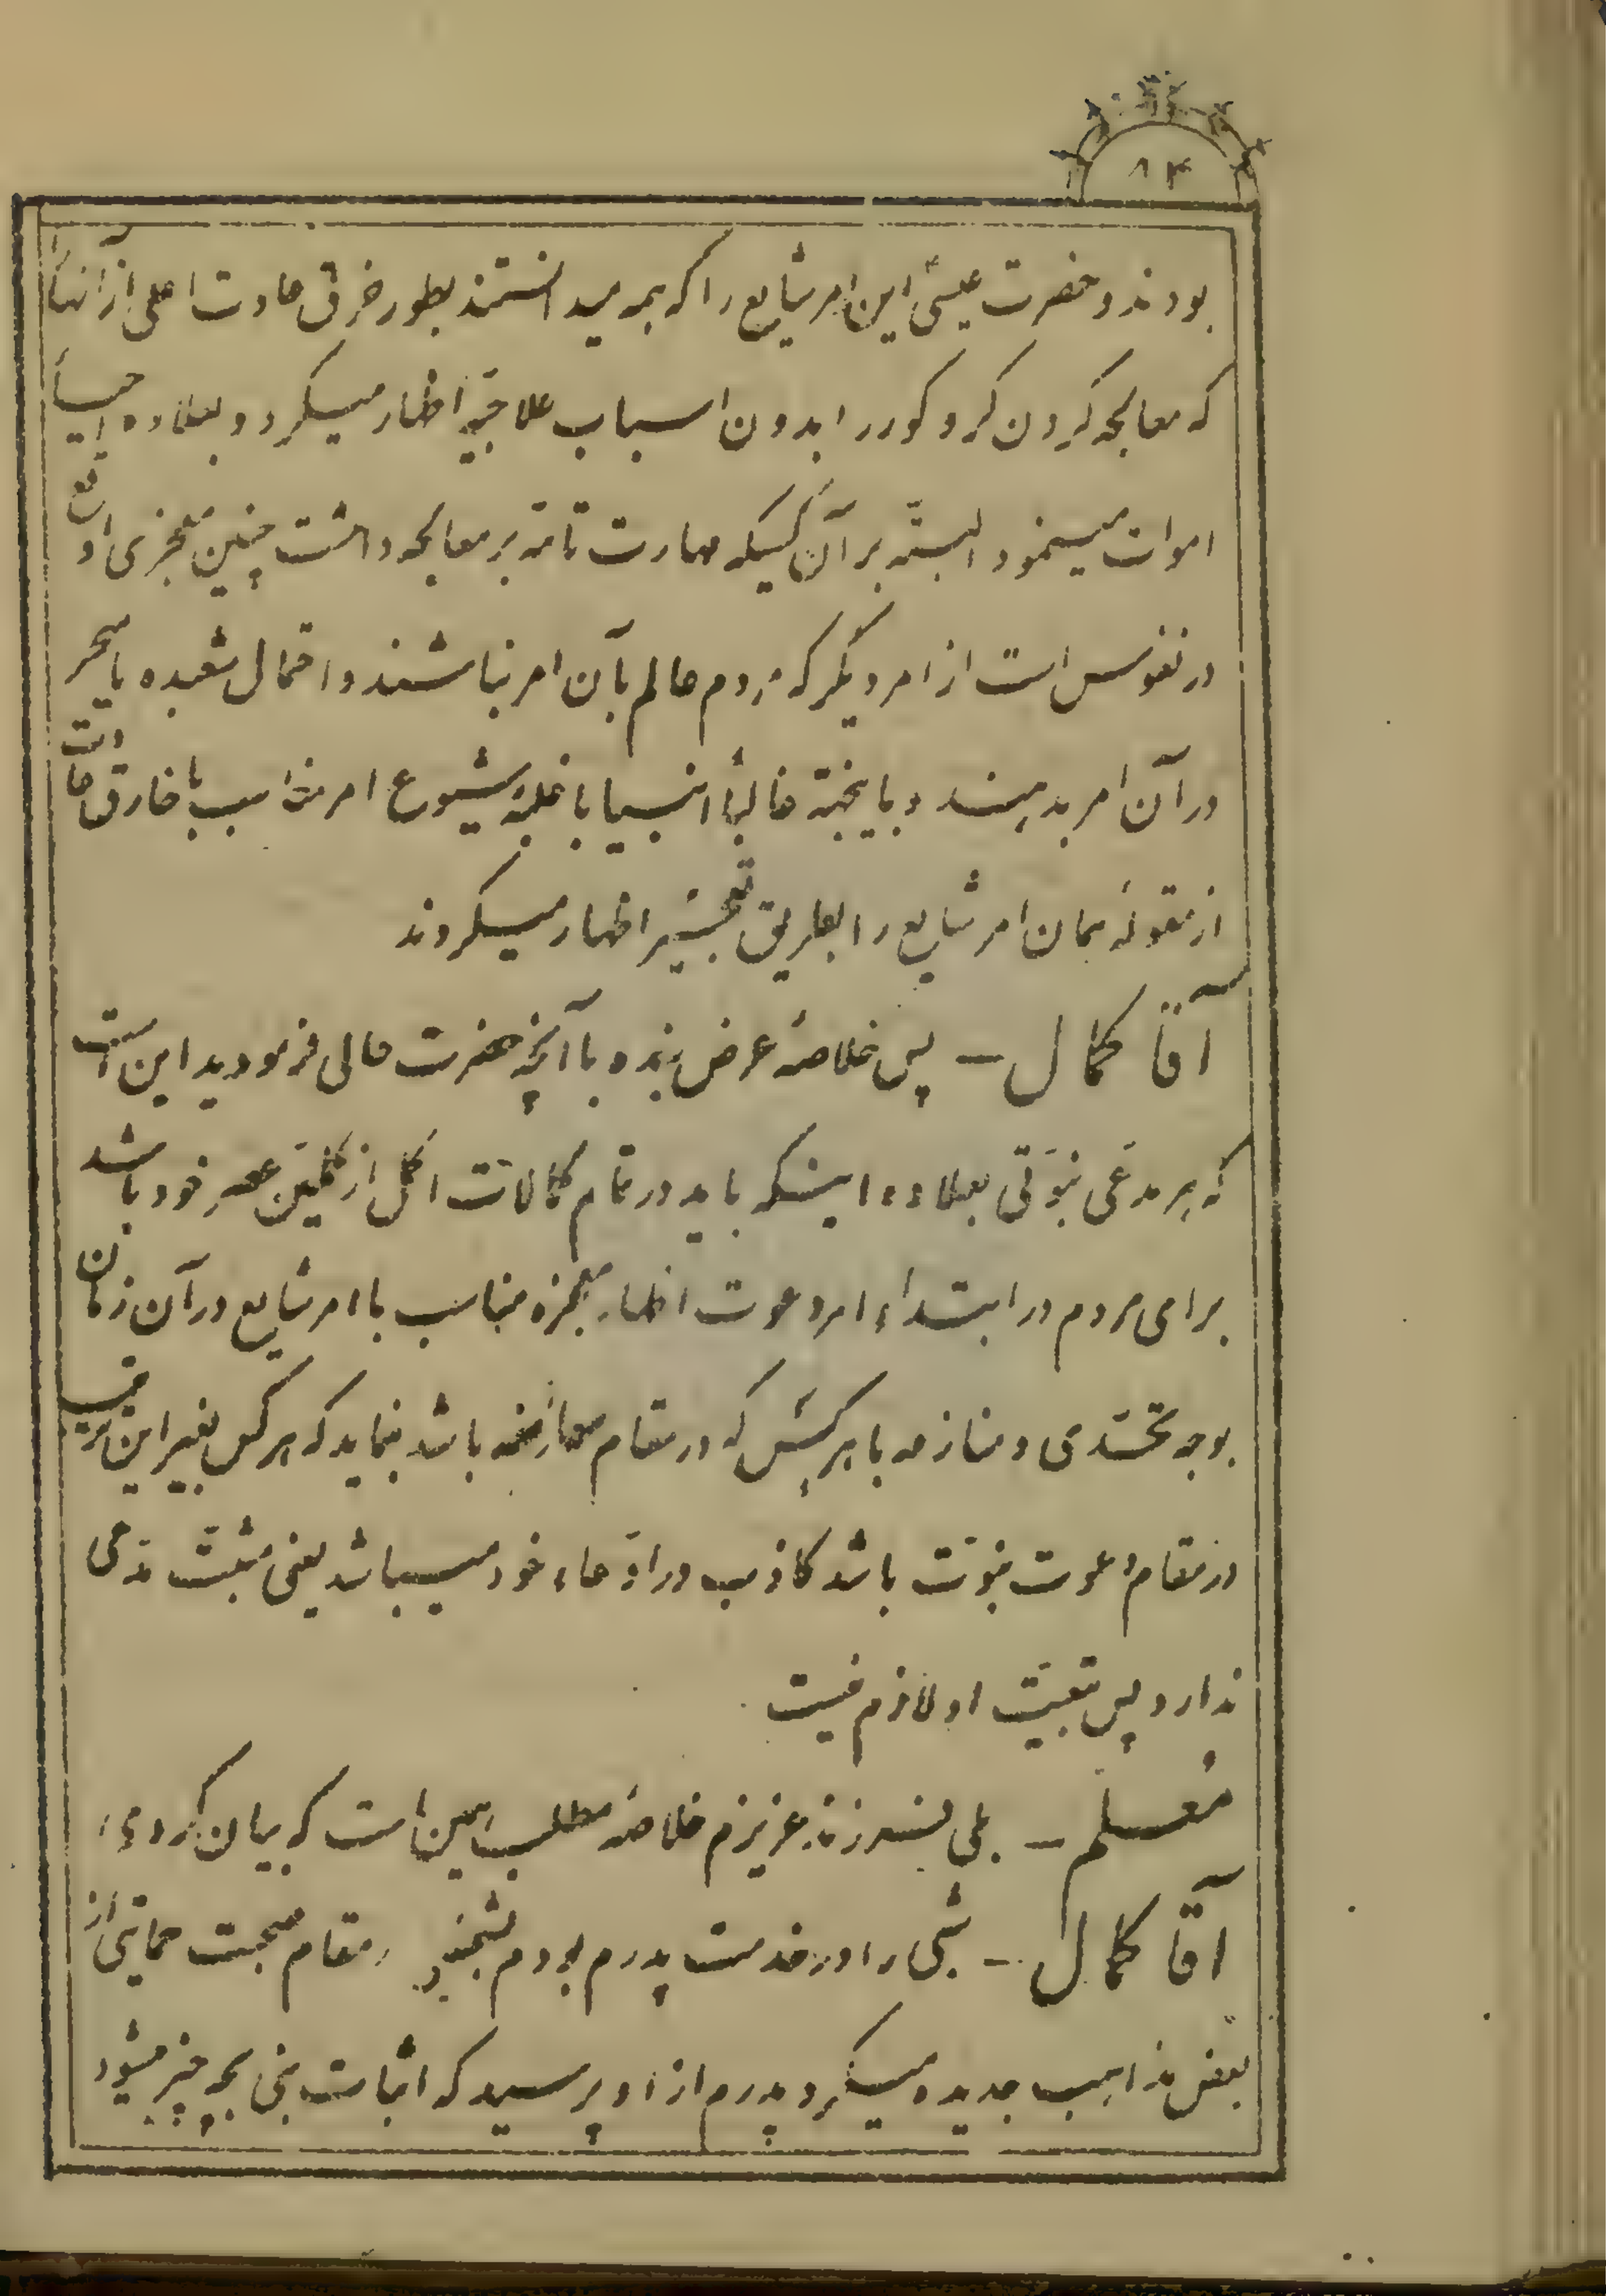 ۸۴
بودند و حضرت عیسیٰ این امر شایع را که همه میدانستند بطور خرق عادت اعلی از آنها
که معالجه کردن کر و کور را بدون اسباب علاجیّه اظهار میکرد و بعلاوه احیاء
اموات مینمود البتّه بر آن کسیکه مهارت تامّه بر معالجه داشت چنین معجزی اوقع
در نفوس است از امر دیگر که مردم عالم بآن امر نباشند و احتمال شعبده یا سحر
در آن امر بدهند و باینجهة غالباً انبیا با غلبهٔ شیوع امر مناسب با خارق عادت
از مقولهٔ همان امر شایع را بطریق تعجیز اظهار میکردند
آقا کمال — پس خلاصهٔ عرض بنده با آنچه حضرت عالی فرمودید این است
که هر مدّعی نبوّتی بعلاوه اینکه باید در تمام کمالات اکمل از کملین عصر خود باشد
برای مردم در ابتداء امر دعوت اظهار معجزه مناسب با امر شایع در آن زمان
بوجه تحدّی و منازعه با هر کس که در مقام معارضه باشد بنماید که هر کس بغیر این ترتیب
در مقام دعوت نبوّت باشد کاذب در ادّعاء خود میباشد یعنی مثبت مدّعی
ندارد پس تبعیّت او لازم نیست
معلم — بلی فرزند عزیزم خلاصهٔ مطلب همین است که بیان کردهٔ
آقا کمال — شبی را در خدمت پدرم بودم شخصی در مقام صحبت حمایتی از
بعض مذاهب جدیده میکرد پدرم از او پرسید که اثبات نبی بچه چیز میشود